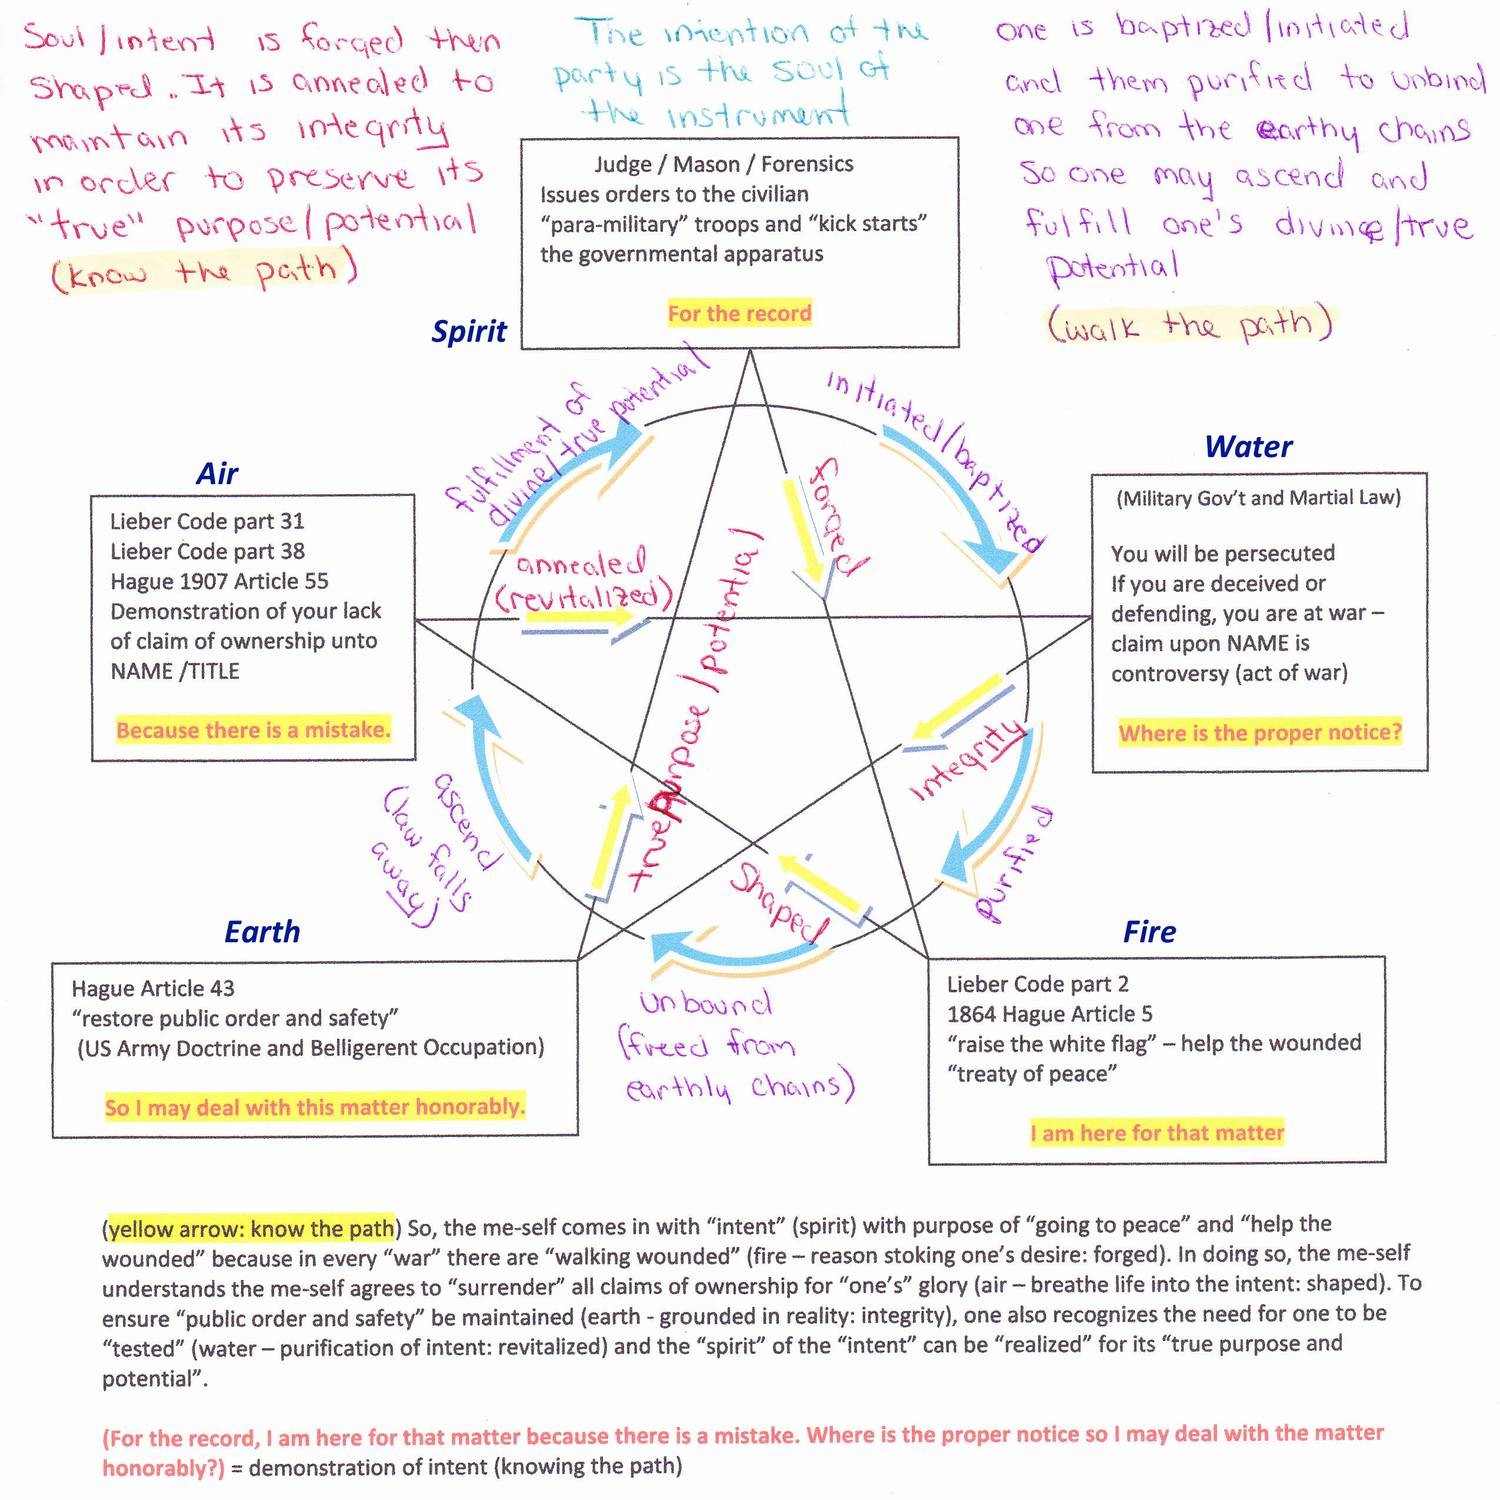 Soul/intent is forged then
shaped. It is annealed to
maintain its integrity
in order to preserve its
"true" purpose/potential
(know the path)
The intention of the
party is the soul of
the instrument
one is baptized/initiated
and them purified to unbind
one from the earthy chains
so one may ascend and
fulfill one's divine/true
potential
(walk the path)
Judge / Mason / Forensics
Issues orders to the civilian
“para-military” troops and “kick starts”
the governmental apparatus
For the record
Spirit
fulfillment of
divine/true potential
initiated/baptized
Water
(Military Gov’t and Martial Law)
You will be persecuted
If you are deceived or
defending, you are at war –
claim upon NAME is
controversy (act of war)
Where is the proper notice?
Air
Lieber Code part 31
Lieber Code part 38
Hague 1907 Article 55
Demonstration of your lack
of claim of ownership unto
NAME /TITLE
Because there is a mistake.
annealed
(revitalized)
forged
true purpose/potential
Integrity
Shaped
purified
ascend
(law falls
away)
unbound
(freed from
earthly chains)
Earth
Hague Article 43
“restore public order and safety”
(US Army Doctrine and Belligerent Occupation)
So I may deal with this matter honorably.
Fire
Lieber Code part 2
1864 Hague Article 5
“raise the white flag” – help the wounded
“treaty of peace”
I am here for that matter
(yellow arrow: know the path) So, the me-self comes in with “intent” (spirit) with purpose of “going to peace” and “help the
wounded” because in every “war” there are “walking wounded” (fire – reason stoking one’s desire: forged). In doing so, the me-self
understands the me-self agrees to “surrender” all claims of ownership for “one’s” glory (air – breathe life into the intent: shaped). To
ensure “public order and safety” be maintained (earth - grounded in reality: integrity), one also recognizes the need for one to be
“tested” (water – purification of intent: revitalized) and the “spirit” of the “intent” can be “realized” for its “true purpose and
potential”.
(For the record, I am here for that matter because there is a mistake. Where is the proper notice so I may deal with the matter
honorably?) = demonstration of intent (knowing the path)